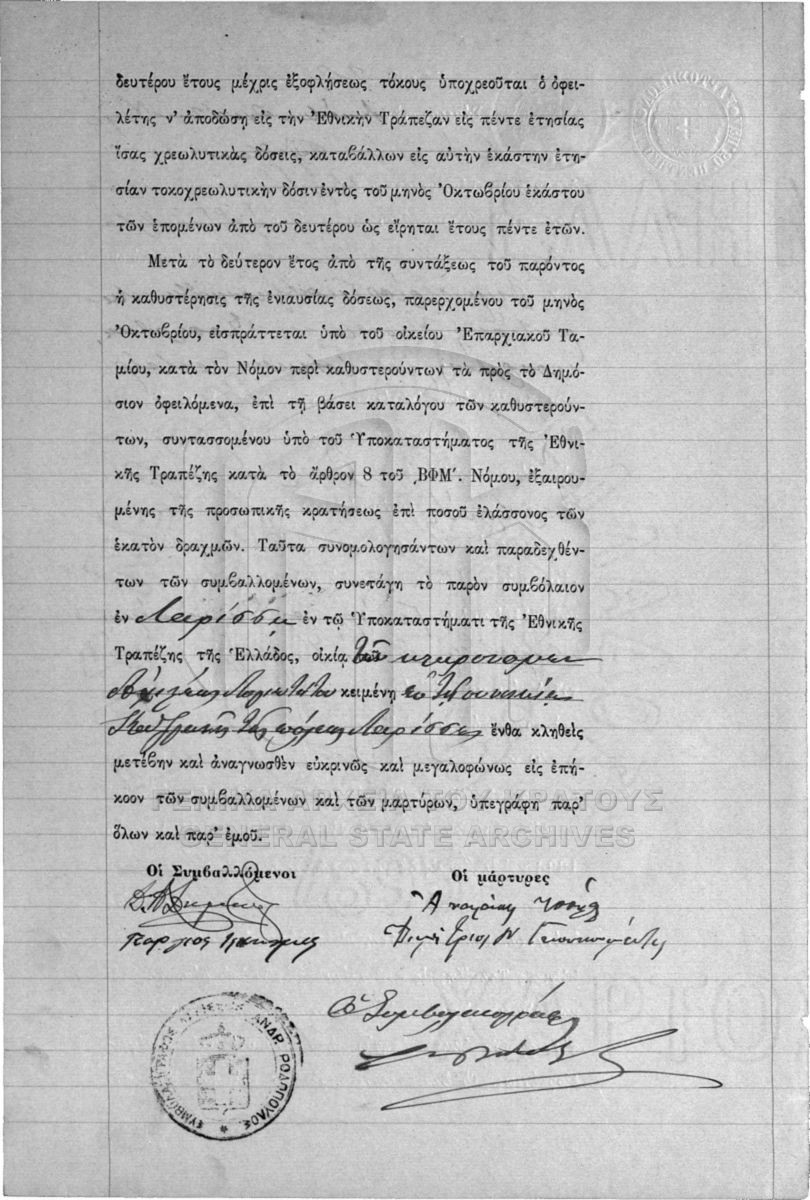 δευτέρου ἔτους μέχρις ἐξοφλήσεως τόκους ὑποχρεοῦται ὁ ὀφει-
λέτης ν' ἀποδώσῃ εἰς τὴν Ἐθνικὴν Τράπεζαν εἰς πέντε ἐτησίας
ἴσας χρεωλυτικὰς δόσεις, καταβάλλων εἰς αὐτὴν ἑκάστην ἐτη-
σίαν τοκοχρεωλυτικὴν δόσιν ἐντὸς τοῦ μηνὸς Ὀκτωβρίου ἑκάστου
τῶν ἑπομένων ἀπὸ τοῦ δευτέρου ὡς εἴρηται ἔτους πέντε ἐτῶν.
Μετὰ τὸ δεύτερον ἔτος ἀπὸ τῆς συντάξεως τοῦ παρόντος
ἡ καθυστέρησις τῆς ἐνιαυσίας δόσεως, παρερχομένου τοῦ μηνὸς
Ὀκτωβρίου, εἰσπράττεται ὑπὸ τοῦ οἰκείου Ἐπαρχιακοῦ Τα-
μίου, κατὰ τὸν Νόμον περὶ καθυστερούντων τὰ πρὸς τὸ Δημό-
σιον ὀφειλόμενα, ἐπὶ τῇ βάσει καταλόγου τῶν καθυστερούν-
των, συντασσομένου ὑπὸ τοῦ Ὑποκαταστήματος τῆς Ἐθνι-
κῆς Τραπέζης κατὰ τὸ ἄρθρον 8 τοῦ ͵ΒΦΜʹ. Νόμου, ἐξαιρου-
μένης τῆς προσωπικῆς κρατήσεως ἐπὶ ποσοῦ ἐλάσσονος τῶν
ἑκατὸν δραχμῶν. Ταῦτα συνομολογησάντων καὶ παραδεχθέν-
των τῶν συμβαλλομένων, συνετάγη τὸ παρὸν συμβόλαιον
ἐν Λαρίσσῃ ἐν τῷ Ὑποκαταστήματι τῆς Ἐθνικῆς
Τραπέζης τῆς Ἑλλάδος, οἰκίᾳ τῶν κληρονόμων
κειμένῃ
τῆς πόλεως Λαρίσσης ἔνθα κληθεὶς
μετέβην καὶ ἀναγνωσθὲν εὐκρινῶς καὶ μεγαλοφώνως εἰς ἐπή-
κοον τῶν συμβαλλομένων καὶ τῶν μαρτύρων, ὑπεγράφη παρ'
ὅλων καὶ παρ' ἐμοῦ.
ΓΕΝΙΚΑ ΑΡΧΕΙΑ ΤΟΥ ΚΡΑΤΟΥΣ
GENERAL STATE ARCHIVES
Οἱ Συμβαλλόμενοι
Οἱ μάρτυρες
Γεώργιος
Δημήτριος
Ὁ Συμβολαιογράφος
ΣΥΜΒΟΛΑΙΟΓΡΑΦΟΣ ΑΝΔΡ. ΡΟΔΟΠΟΥΛΟΣ